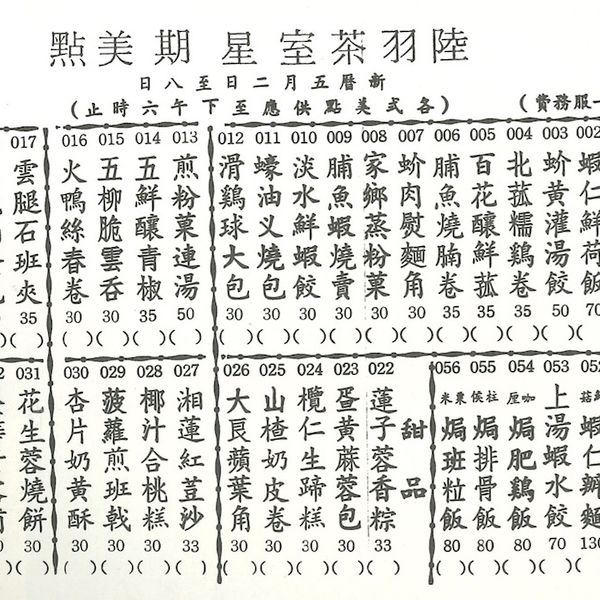 陸羽茶室星期美點
新曆五月二日至八日
(各式美點供應至下午六時止)
一服務費)
002 蝦仁鮮荷飯
003 蚧黃灌湯餃 50
004 北菰糯鷄卷 35
005 百花釀鮮菰 35
006 脯魚燒腩卷 30
007 蚧肉熨麵角 30
008 家鄉蒸粉菓 30
009 脯魚蝦燒賣 30
010 淡水鮮蝦餃 30
011 蠔油义燒包 30
012 滑鷄球大包 30
013 煎粉菓連湯 50
014 五鮮釀青椒 35
015 五柳脆雲吞 30
016 火鴨絲春卷 30
017 雲腿石班夾 35
053 上湯蝦水餃 70
054 咖喱焗肥鷄飯 80
055 柱侯焗排骨飯 80
056 粟米焗班粒飯 80
甜品
022 蓮子蓉香粽 33
023 蛋黃蔴蓉包 30
024 欖仁生蹄糕 30
025 山楂奶皮卷 30
026 大良蘋葉角 30
027 湘蓮紅荳沙 33
028 椰汁合桃糕 30
029 菠蘿煎班戟 30
030 杏片奶黃酥 30
031 花生蓉燒餅 30